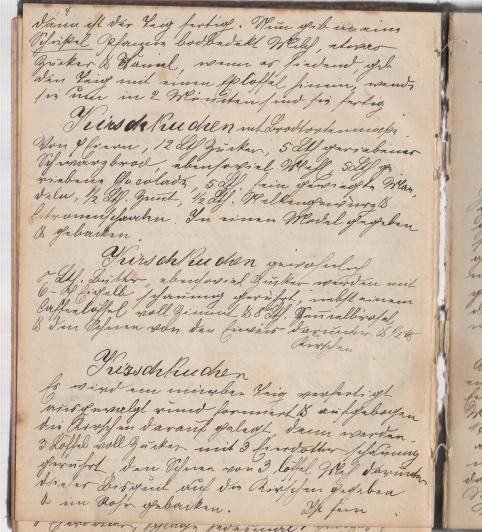 4
dann ist der Teig fertig. Nun gib in eine
Schüssel Pfanne bodbedekt Milch, etwas
Zucker & Vaniel, wenn es siedend gib
den Teig mit einem Eßlöffel hinein, wende
sie um in 2 Minuten sind sie fertig
Kirschkuchen mit Brodtortenmasse
Von Eiern, 12 Lth Zucker, 5 Lth geriebenes
Schwarzbrod, ebensoviel Mehl, 5 Lth ge
riebene Chocolade, 5 Lth. fein gewiegte Man
deln, 1/2 Lth. Zimt, 1/2 Lth. Nelkengewürz &
Citronenschaalen. In einen Model gegeben
& gebacken.
Kirschkuchen gewöhnlich
5 Lth. Butter, ebensoviel Zucker werden mit
6 Eigelb schaumig gerührt, nebst einem
Caffeelöffel voll Zimmt & 8 Lth. Semmelbrösel
& den Schnee von den Eiweis darunter & 1/2 lb
Kirschen
Kirschkuchen
Es wird ein mürber Teig verfertigt
ausgewalgt rund formiert & aufgebogen
die Kirschen darauf gelegt, dann werden
3 Löffel voll Zucker mit 3 Eierdotter schaumig
gerührt, den Schnee von 3 Löfel Mehl darunter
dieses Bisquit auf die Kirschen gegeben
& im Rohr gebacken. Ist fein